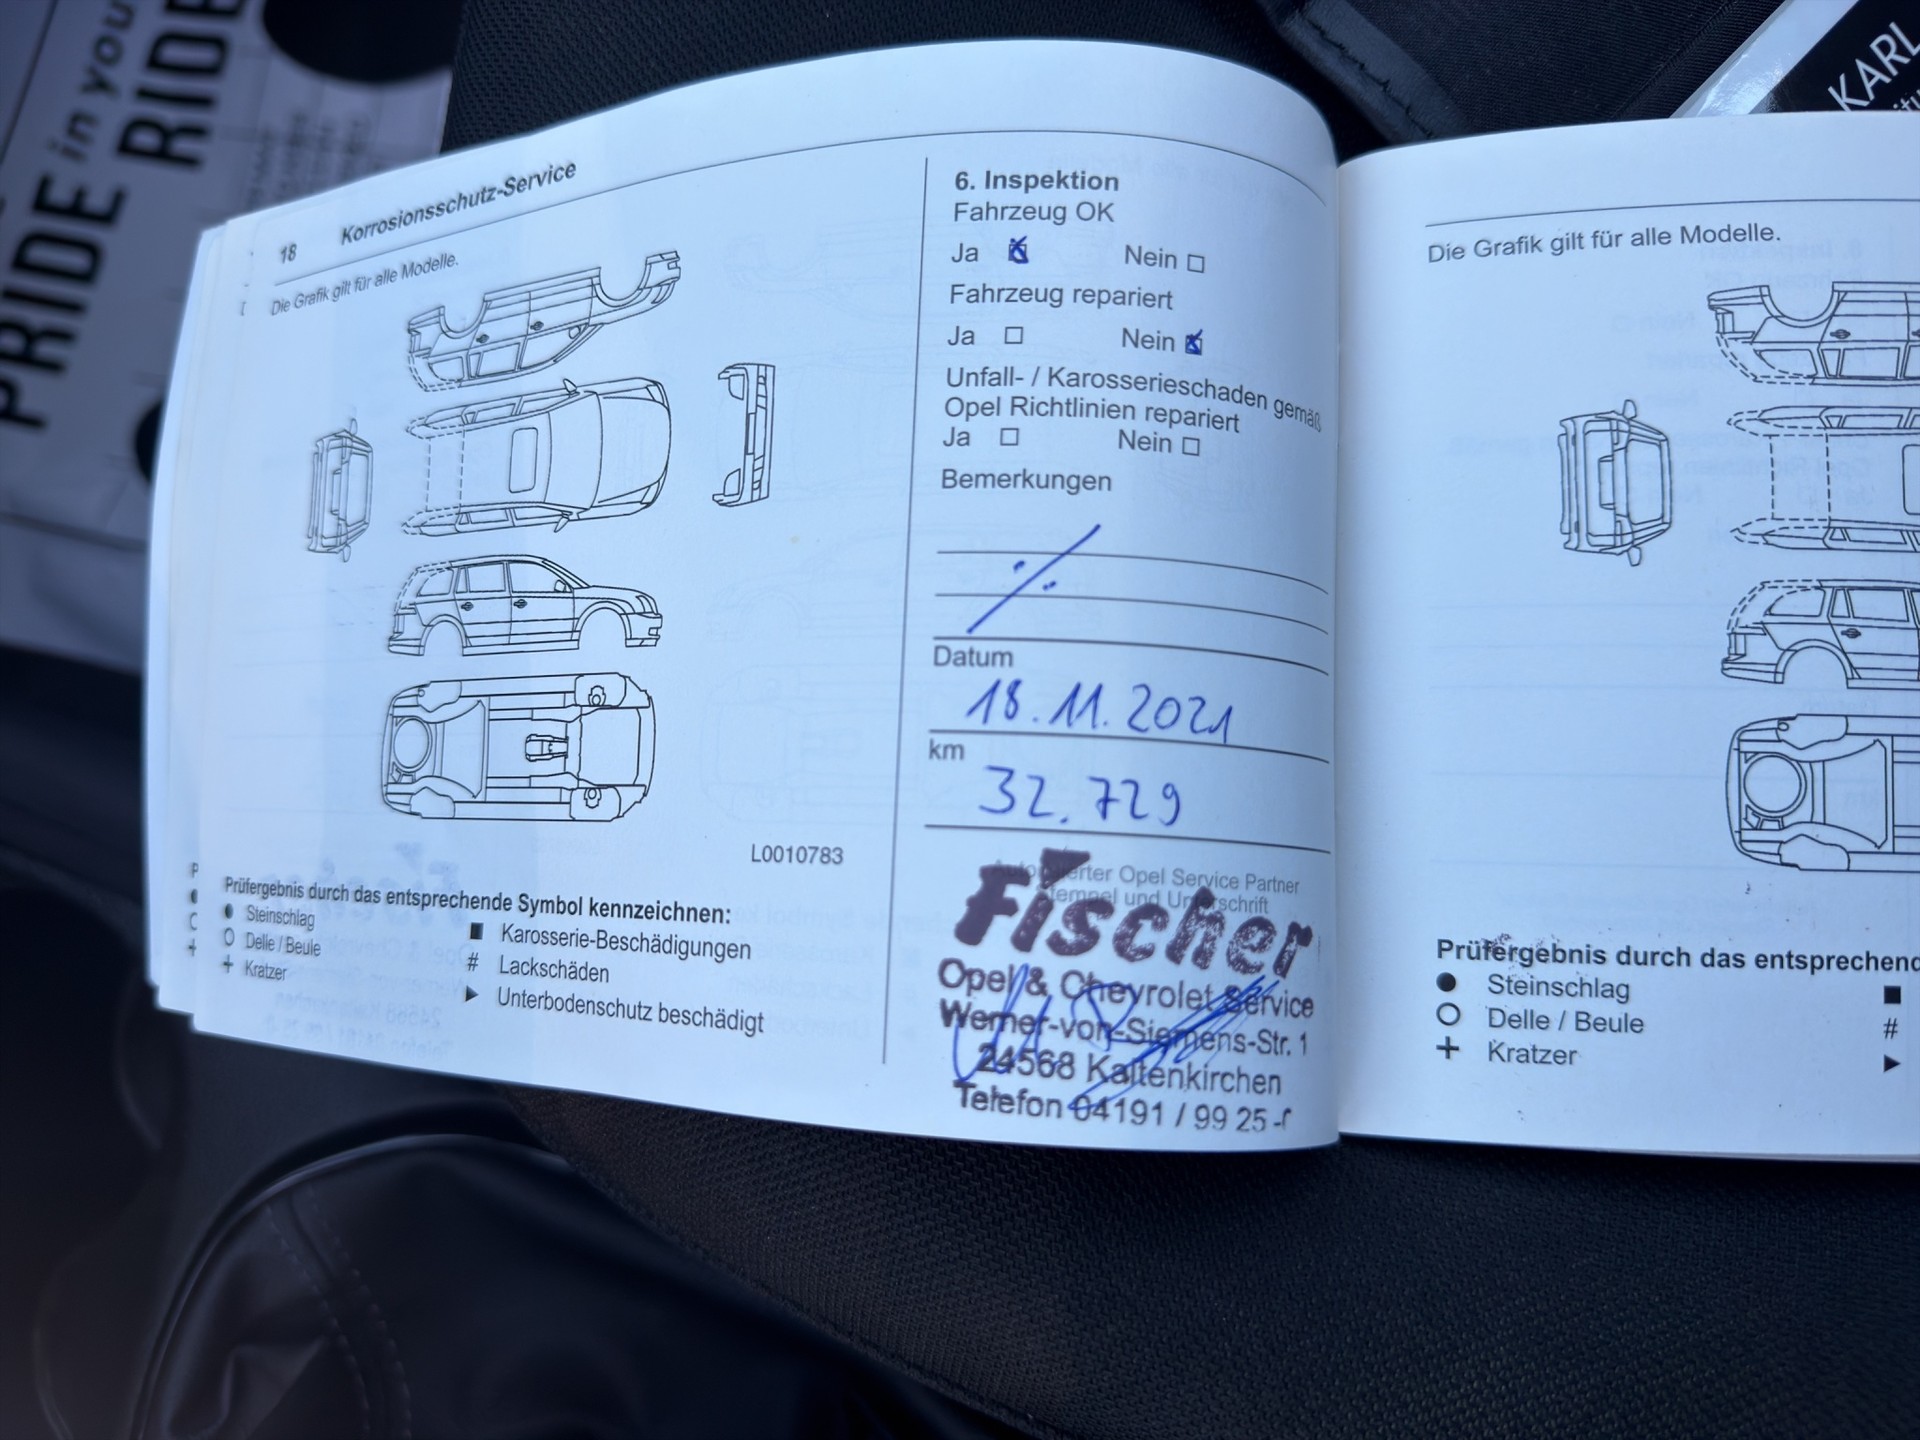 PRIDE in you
RIDE
KARL
18 Korrosionsschutz-Service
Die Grafik gilt für alle Modelle.
L0010783
Prüfergebnis durch das entsprechende Symbol kennzeichnen:
Steinschlag
Delle / Beule
+ Kratzer
■ Karosserie-Beschädigungen
# Lackschäden
► Unterbodenschutz beschädigt
6. Inspektion
Fahrzeug OK
Ja Nein
Fahrzeug repariert
Ja Nein
Unfall- / Karosserieschaden gemäß
Opel Richtlinien repariert
Ja Nein
Bemerkungen
Datum
18.11.2021
km
32.729
Opel Service Partner
Fischer
Opel & Chevrolet Service
Werner-von-Siemens-Str. 1
24568 Kaltenkirchen
Telefon 04191 / 99 25 -
Die Grafik gilt für alle Modelle.
Prüfergebnis durch das entsprechend
● Steinschlag
○ Delle / Beule
+ Kratzer
■
#
►